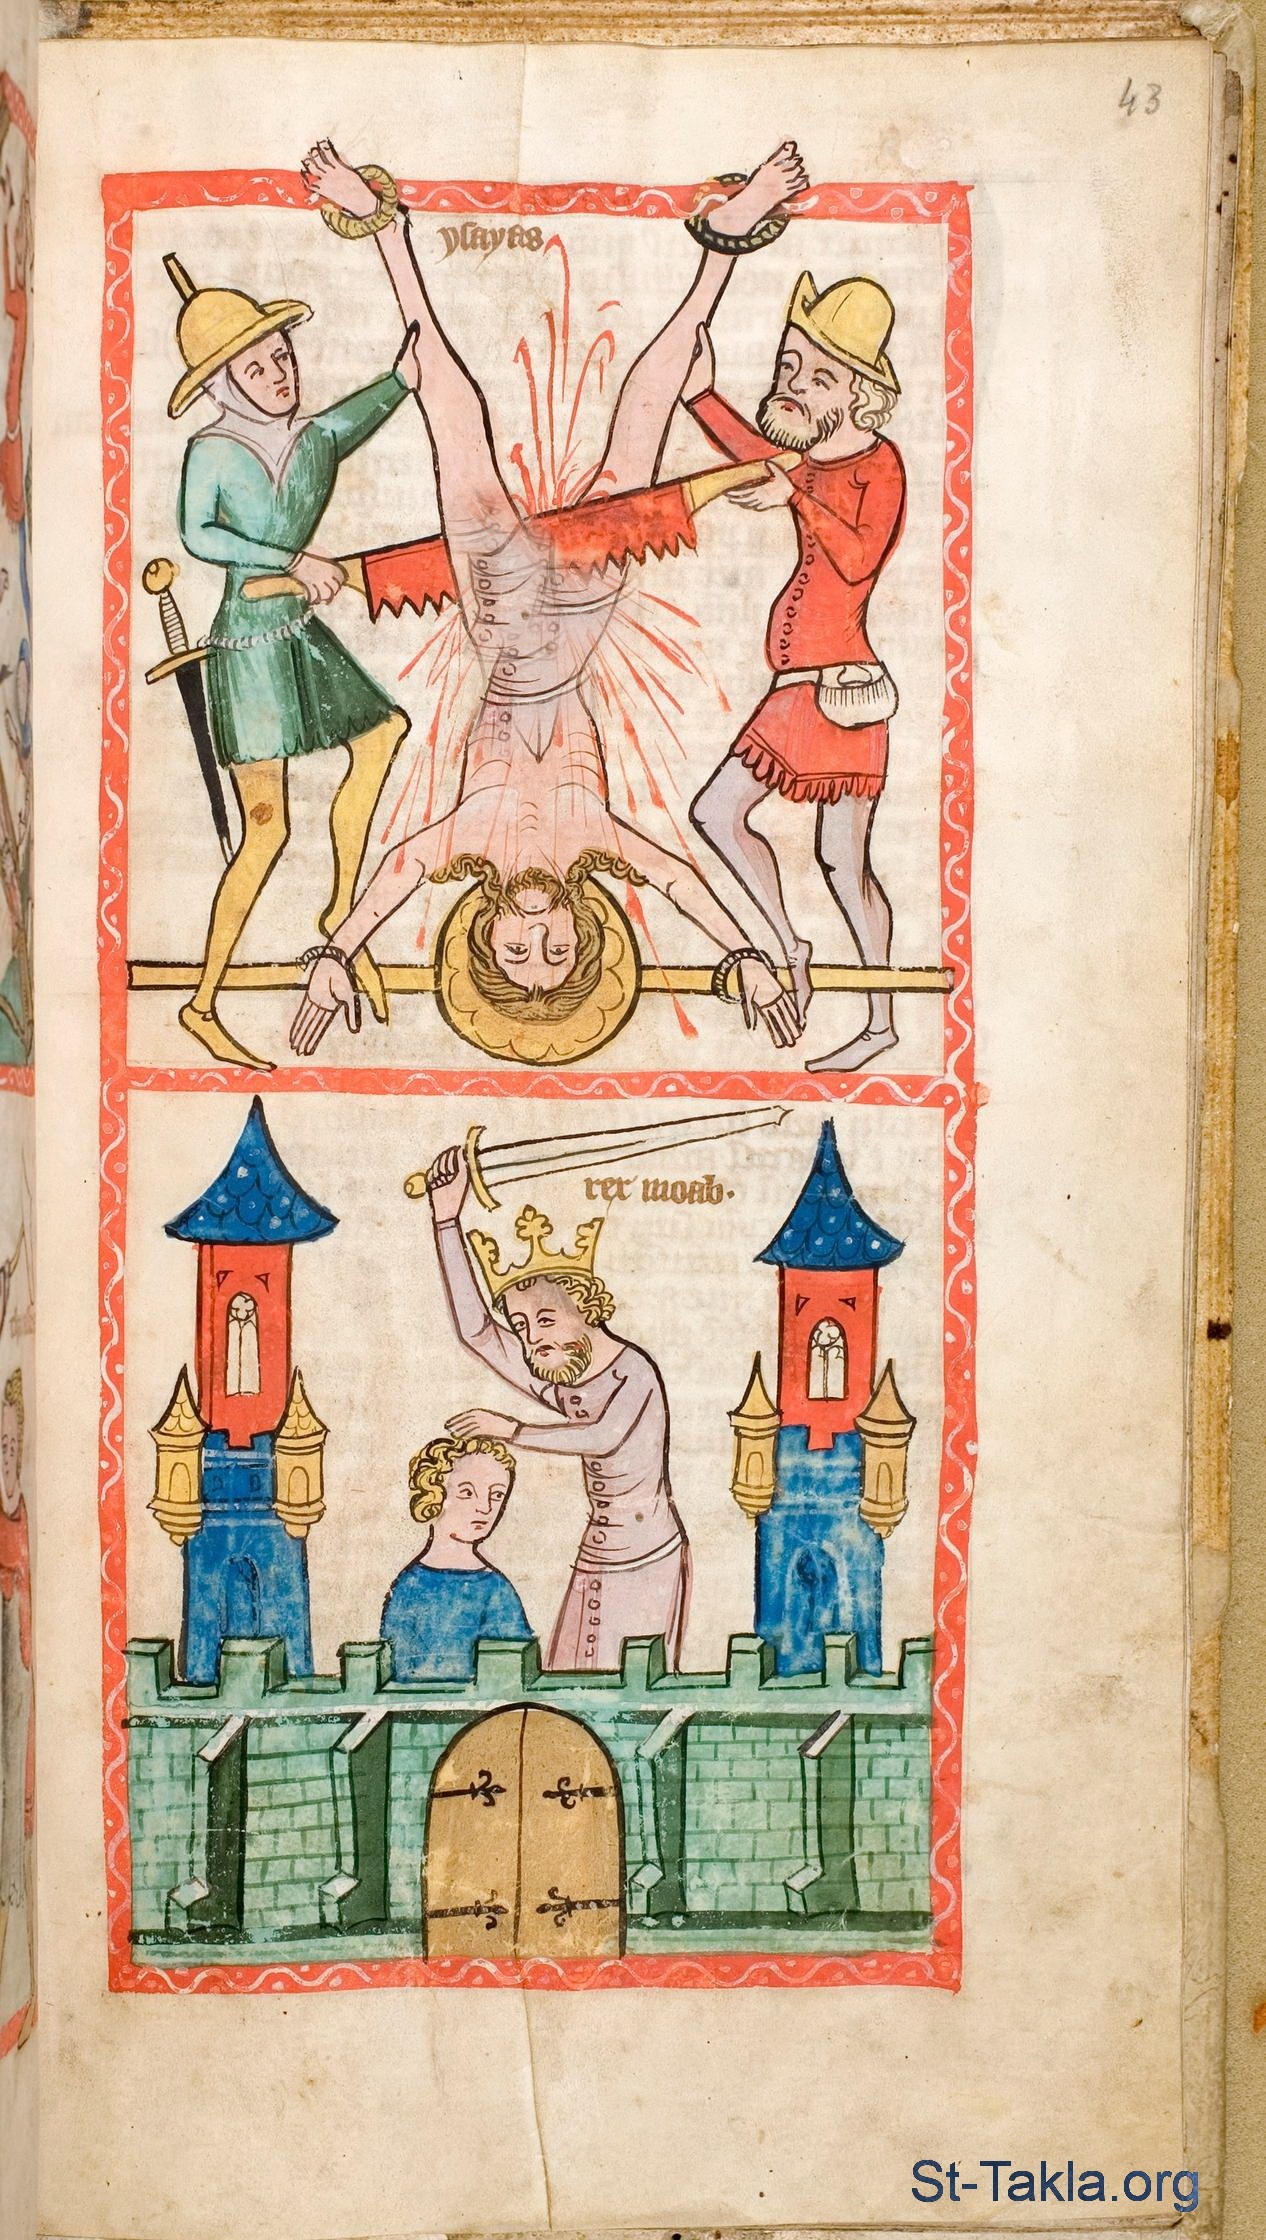 43
ysayas
rex moab.
St-Takla.org